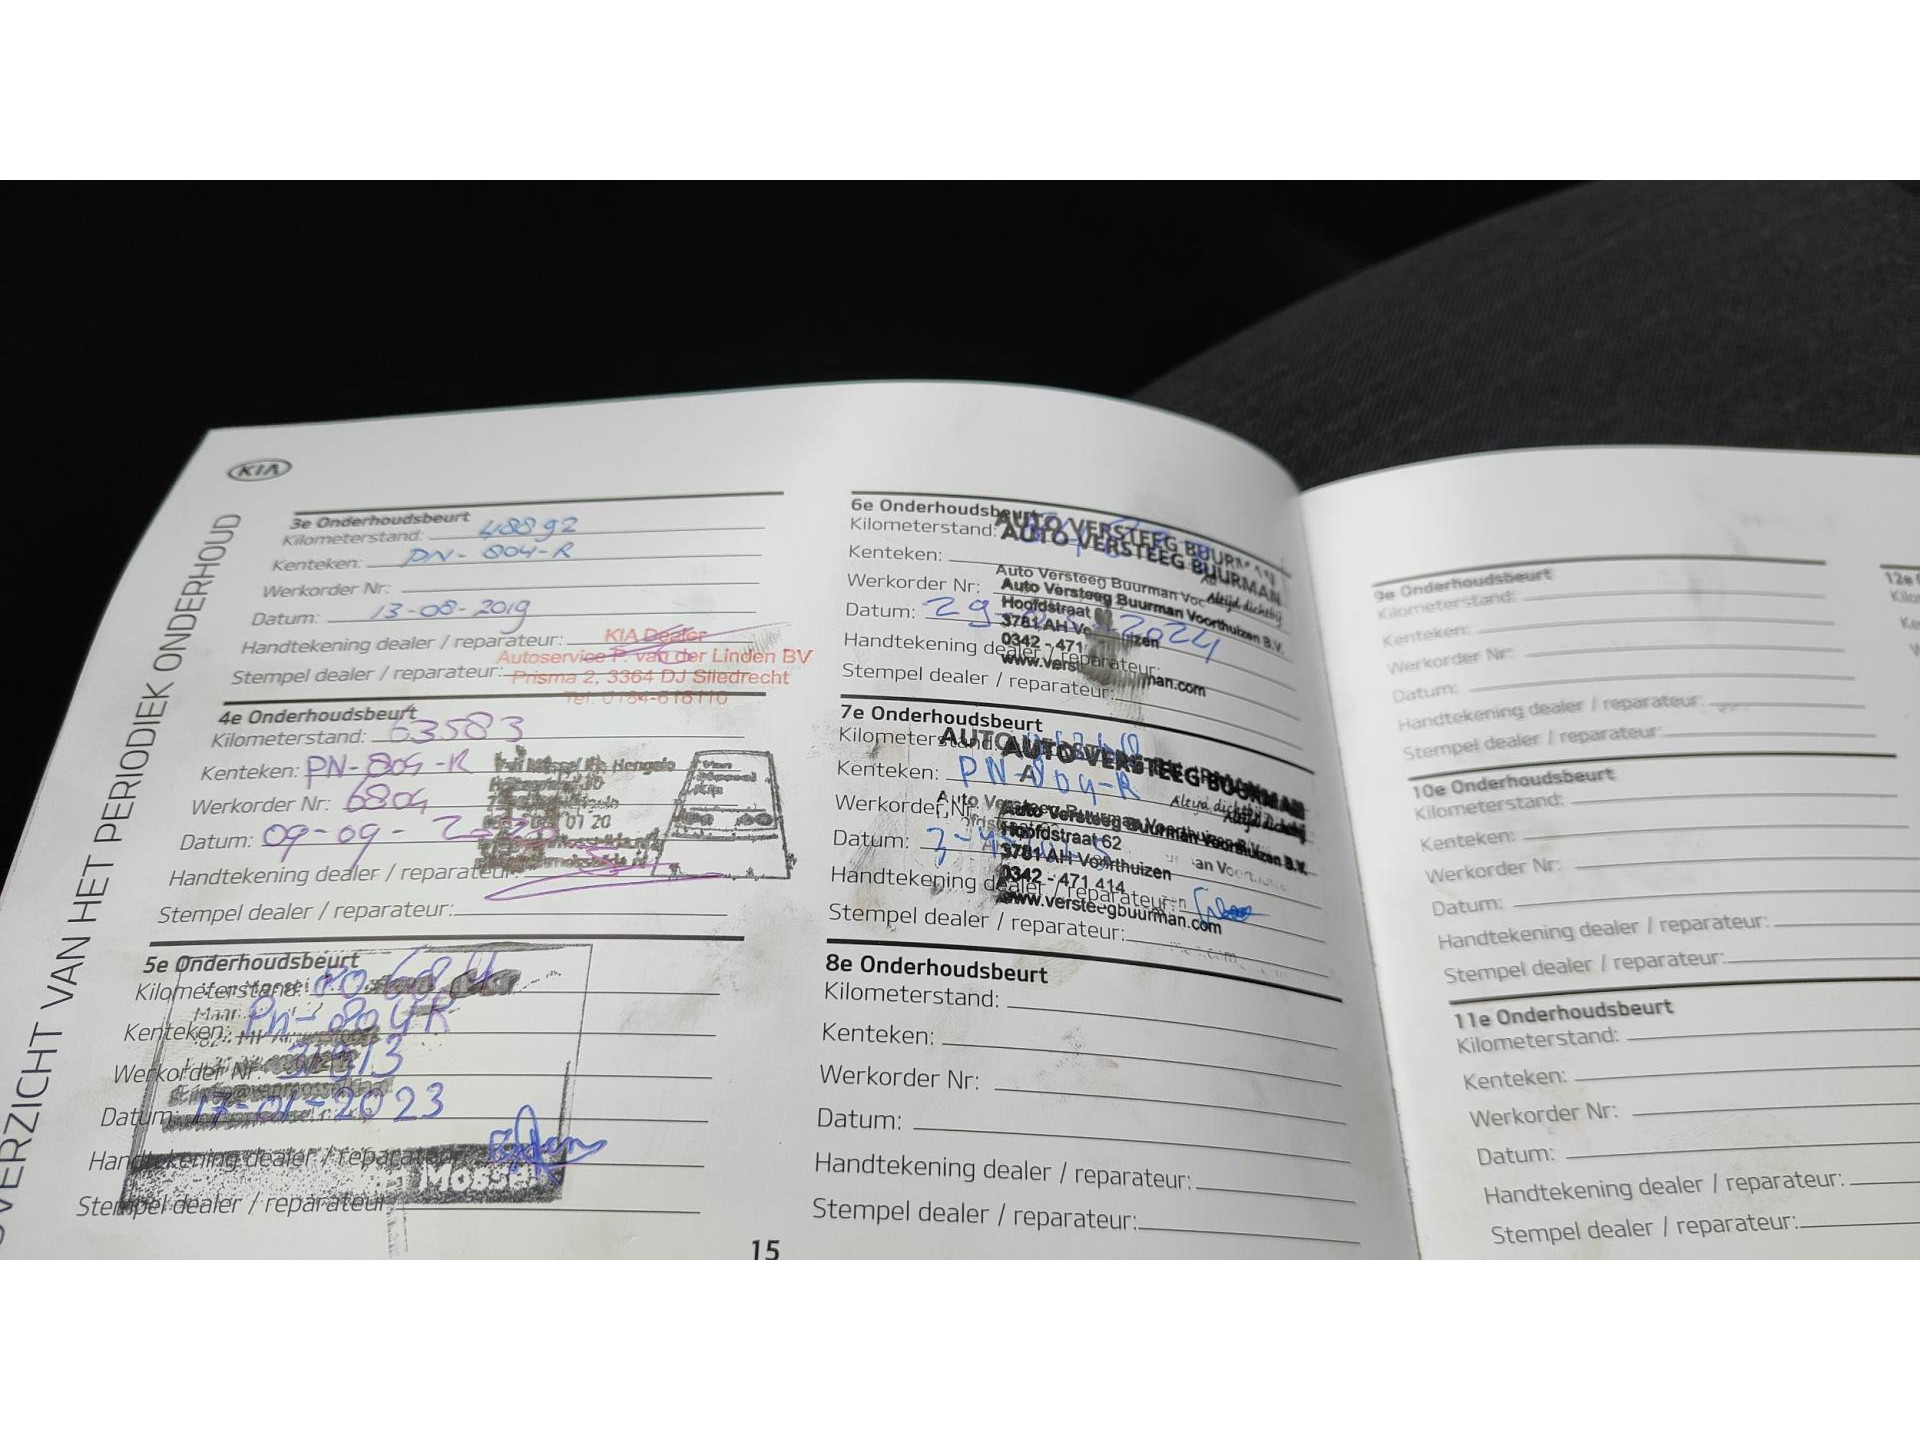 KIA
OVERZICHT VAN HET PERIODIEK ONDERHOUD
3e Onderhoudsbeurt
Kilometerstand: 48892
Kenteken: PN-804-R
Werkorder Nr:
Datum: 13-08-2019
Handtekening dealer / reparateur:
KIA Dealer
Autoservice P. van der Linden BV
Stempel dealer / reparateur:
Prisma 2, 3364 DJ Sliedrecht
Tel. 0184-616110
4e Onderhoudsbeurt
Kilometerstand: 63583
Kenteken: PN-804-R
Werkorder Nr: 6804
Datum: 09-09-
Handtekening dealer / reparateur:
Stempel dealer / reparateur:
5e Onderhoudsbeurt
Kilometerstand:
Kenteken: Pn-804R
Werkorder Nr:
Datum: 17-01-2023
Handtekening dealer / reparateur:
Stempel dealer / reparateur:
15
6e Onderhoudsbeurt
Kilometerstand:
AUTO VERSTEEG BUURMAN
AUTO VERSTEEG BUURMAN
Kenteken:
Auto Versteeg Buurman
Altijd dichtbij
Werkorder Nr:
Auto Versteeg Buurman Voorthuizen B.V.
Hoofdstraat
Datum: 29- 2024
3781 AH
0342 - 471
Handtekening dealer / reparateur:
Stempel dealer / reparateur:
7e Onderhoudsbeurt
Kilometerstand:
AUTO VERSTEEG BUURMAN
Kenteken: PN-804-R
Altijd dichtbij
Werkorder Nr:
Auto Versteeg Buurman Voorthuizen B.V.
Hoofdstraat 62
Datum: 3-
3781 AH Voorthuizen
0342 - 471 414
Handtekening dealer / reparateur:
www.versteegbuurman.com
Stempel dealer / reparateur:
8e Onderhoudsbeurt
Kilometerstand:
Kenteken:
Werkorder Nr:
Datum:
Handtekening dealer / reparateur:
Stempel dealer / reparateur:
9e Onderhoudsbeurt
Kilometerstand:
Kenteken:
Werkorder Nr:
Datum:
Handtekening dealer / reparateur:
Stempel dealer / reparateur:
10e Onderhoudsbeurt
Kilometerstand:
Kenteken:
Werkorder Nr:
Datum:
Handtekening dealer / reparateur:
Stempel dealer / reparateur:
11e Onderhoudsbeurt
Kilometerstand:
Kenteken:
Werkorder Nr:
Datum:
Handtekening dealer / reparateur:
Stempel dealer / reparateur:
12e